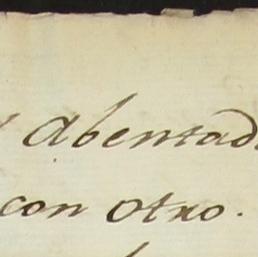 Abentad
con otro.